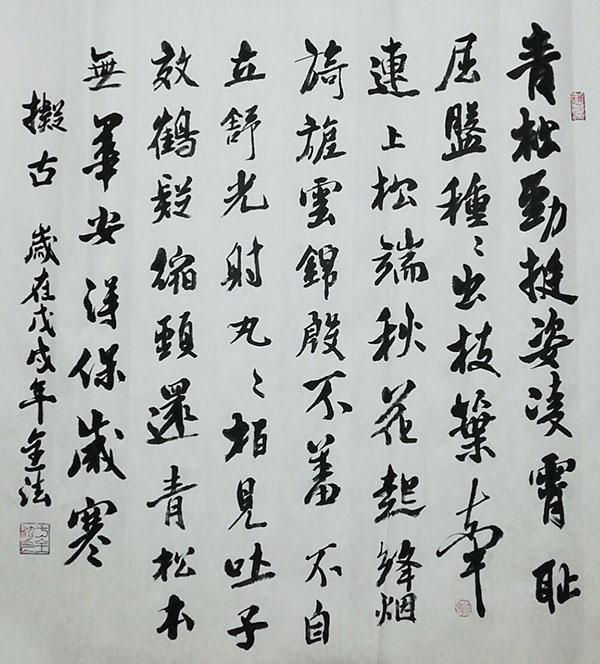 青松勁挺姿凌霄恥
屈盤種〻出枝葉牽
連上松端秋花起絳烟
旖旎雲錦殷不羞不自
立舒光射丸〻柏見吐子
效鶴疑縮頸還青松本
無華安得保歲寒
擬古 歲在戊戌年金法